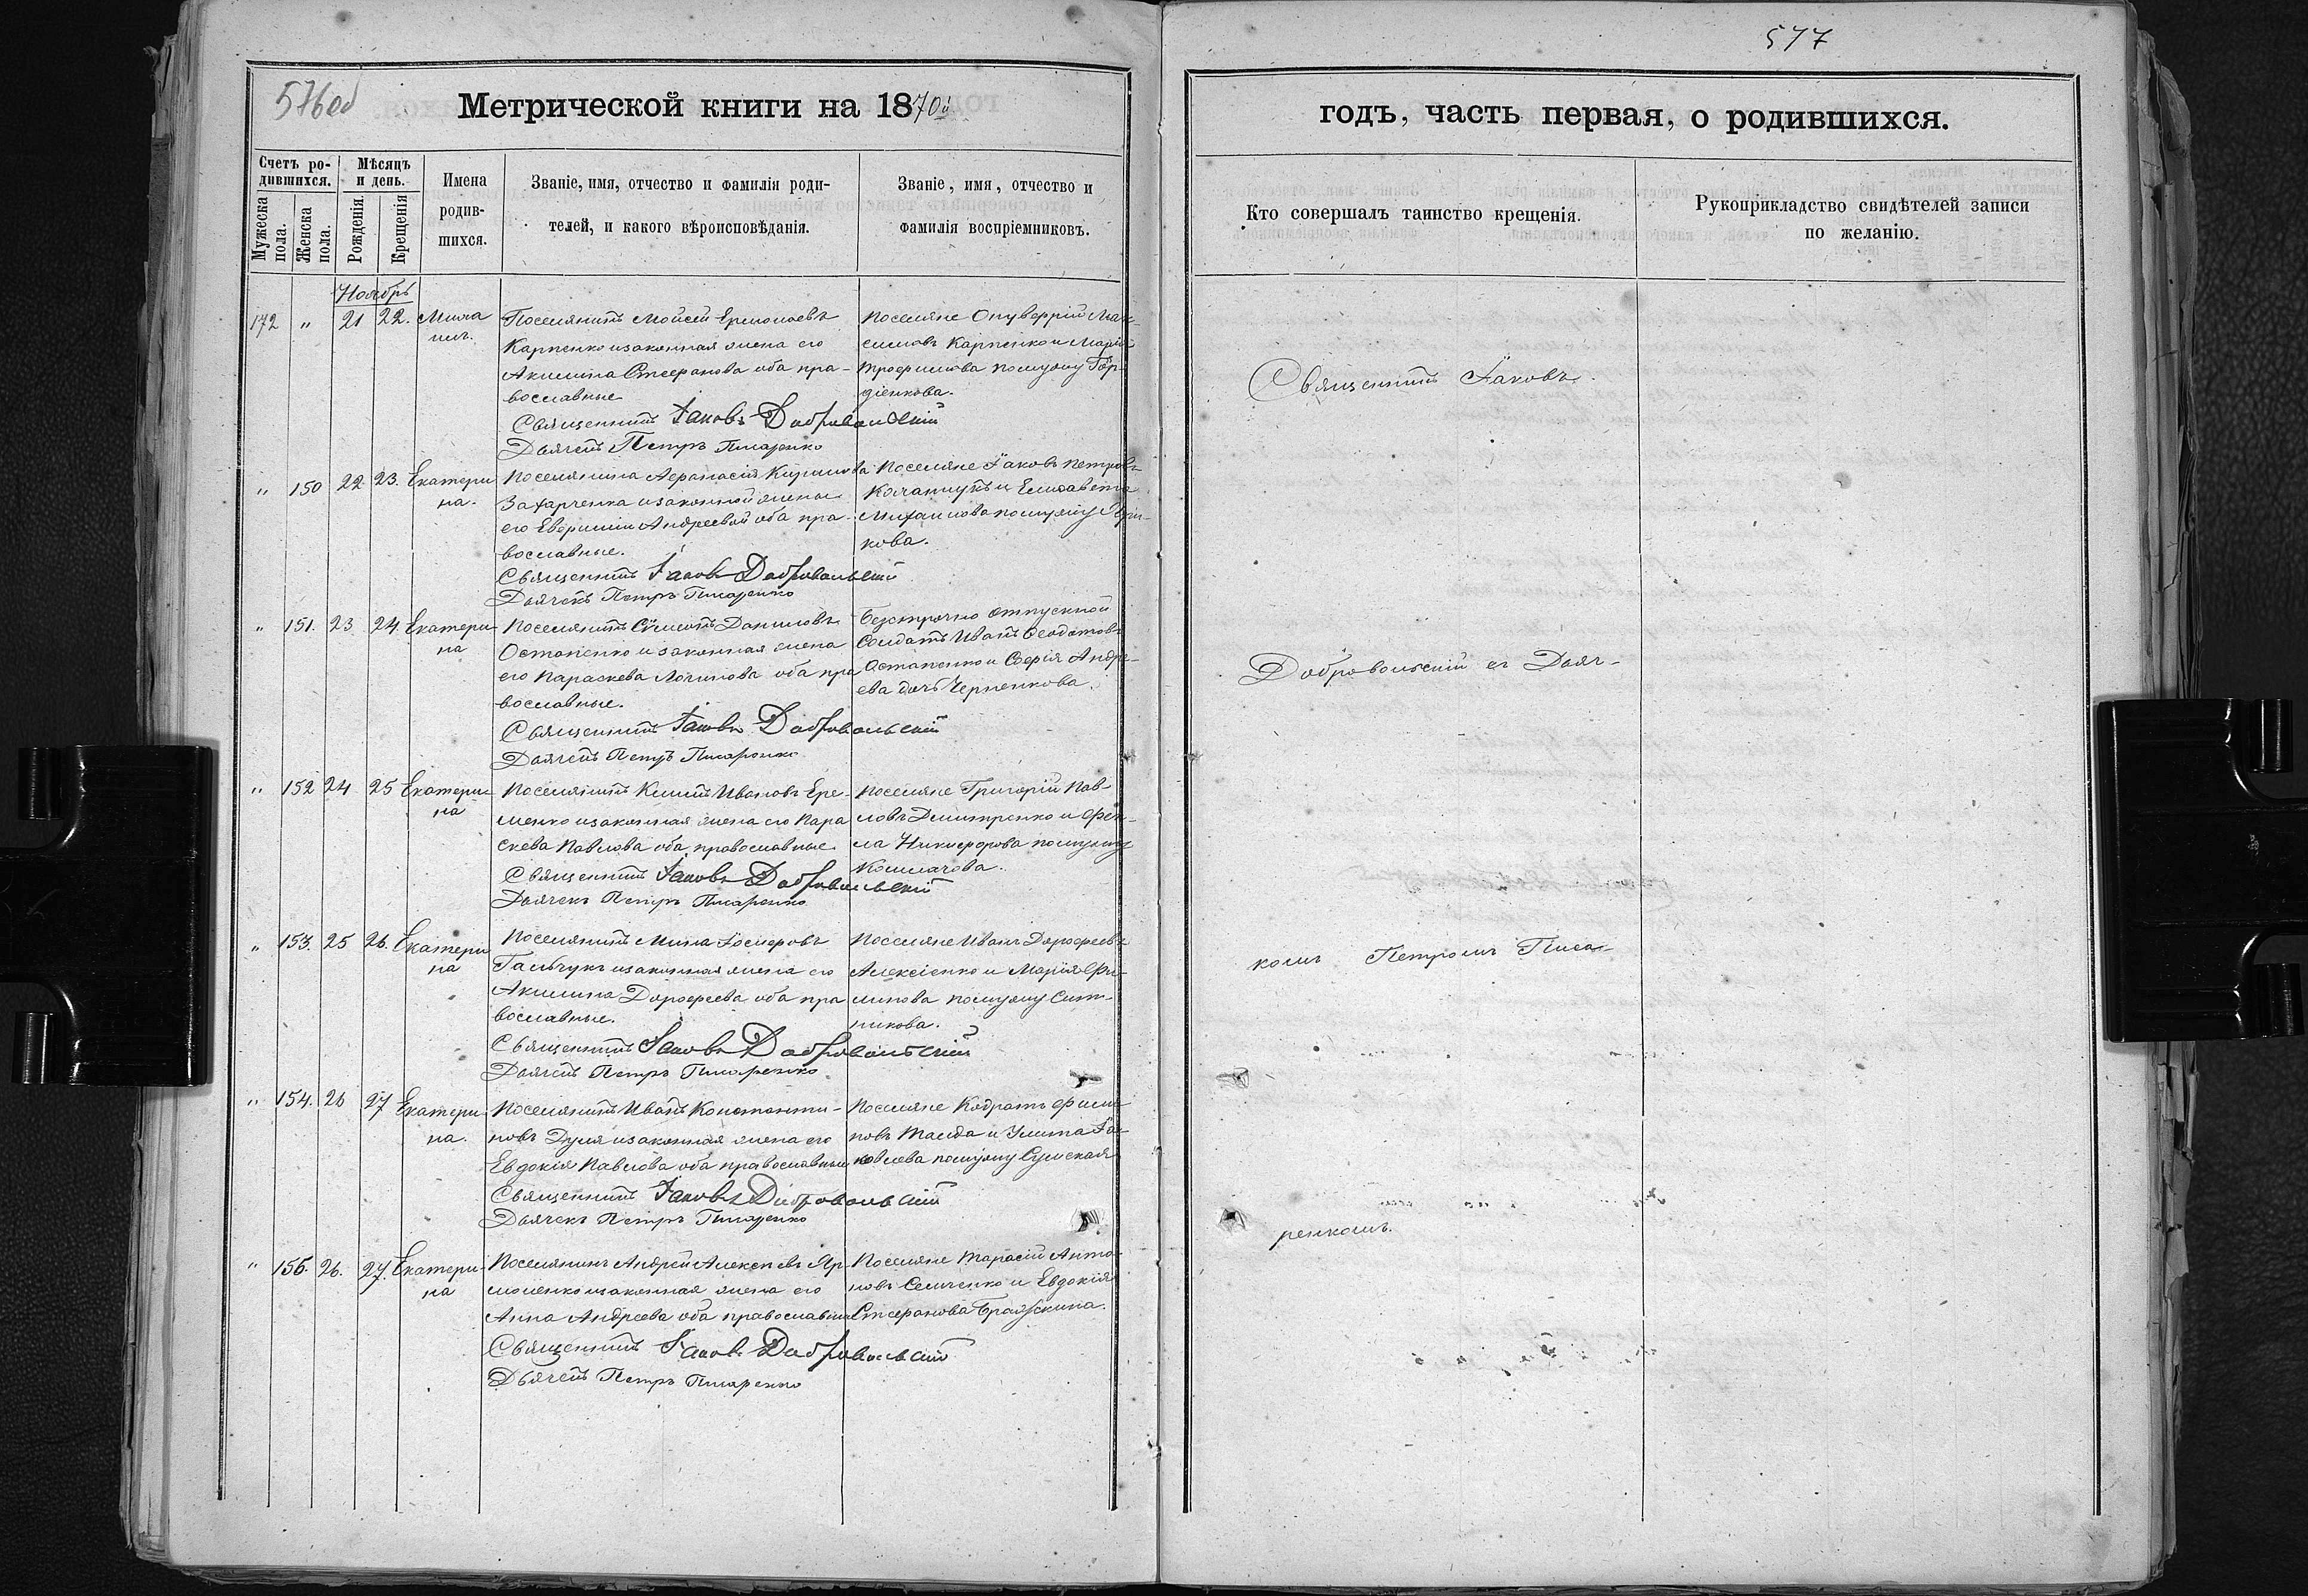 576об
Метрической книги на 1870й
Счетъ ро-
дившихся.
Мѣсяцъ
и день.
Мужеска
пола.
Женска
пола.
Рожденія.
Крещенія
Имена
родив-
шихся.
Званіе, имя, отчество и фамилія роди-
телей, и какого вѣроисповѣданія.
Званіе, имя, отчество и
фамилія воспріемниковъ.
Ноябрь
172 " 21 22. Миха
илъ.
Поселянинъ Мойсей Ермолаевъ
Карпенко и законная жена его
Акилина Стефанова оба пра-
вославные
Священникъ Іаковъ Добровольскій
Дьячекъ Петръ Писаренко
Поселяне Онуфрій Мак-
симовъ Карпенко и Марія
Трофимова по мужу Гор-
діенкова.
" 150 22 23. Екатери
на.
Поселянина Афанасія Кирилова
Захарченка и законной жены
его Евфиміи Андреевой оба пра-
вославные.
Священникъ Іаковъ Добровольскій
Дьячекъ Петръ Писаренко
Поселяне Іаковъ Петровъ
и Елисавета
Михаилова по мужу
кова.
" 151. 23 24. Екатери
на
Поселянинъ Сѵмеонъ Даниловъ
Остапенко и законная жена
его Параскева Логинова оба пра
вославные.
Священникъ Іаковъ Добровольскій
Дьячекъ Петръ Писаренко
Безсрочно отпускной
Солдатъ Иванъ Феодотовъ
Остапенко и Софія Андре-
ева дочь Черненкова.
" 152 24 25 Екатери
на
Поселянинъ Климъ Ивановъ Ере-
менко и законная жена его Пара
скева Павлова оба православные.
Священникъ Іаковъ Добровольскій
Дьячекъ Петръ Писаренко
Поселяне Григорій Пав-
ловъ Дмитренко и Фек-
ла Никифорова по мужу
Колмачова.
" 153. 25 26. Екатери
на
Поселянинъ Мина Іосифовъ
Гальчукъ и законная жена его
Акилина Дорофеева оба пра
вославные.
Священникъ Іаковъ Добровольскій
Дьячекъ Петръ Писаренко
Поселяне Иванъ Дорофеевъ
Алексіенко и Марія Фи-
липова по мужу Сит-
никова.
" 154. 26 27 Екатери-
на.
Поселянинъ Иванъ Константи-
новъ Дуля и законная жена его
Евдокія Павлова оба православные
Священникъ Іаковъ Добровольскій
Дьячекъ Петръ Писаренко
Поселяне Кодратъ Фили
повъ и Улита Іа-
ковлева по мужу Сумская
" 155. 26. 27. Екатери-
на
Поселянинъ Андрей Алексѣевъ Яр-
моленко и законная жена его
Анна Андреева оба православные
Священникъ Іаковъ Добровольскій
Дьячекъ Петръ Писаренко
Поселяне Тарасій Анто-
новъ Семченко и Евдокія
Стефанова
577
годъ, часть первая, о родившихся.
Кто совершалъ таинство крещенія.
Рукоприкладство свидѣтелей записи
по желанію.
Священникъ Іаковъ
Добровольскій съ Дьяч-
комъ Петромъ Писа-
ренкомъ.